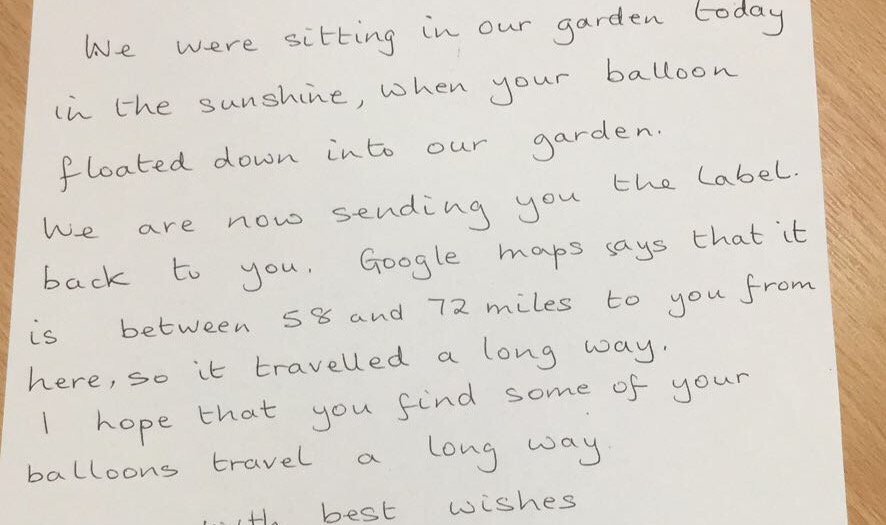 We were sitting in our garden today
in the sunshine, when your balloon
floated down into our garden.
We are now sending you the label.
back to you. Google maps says that it
is between 58 and 72 miles to you from
here, so it travelled a long way.
I hope that you find some of your
balloons travel a long way.
with best wishes